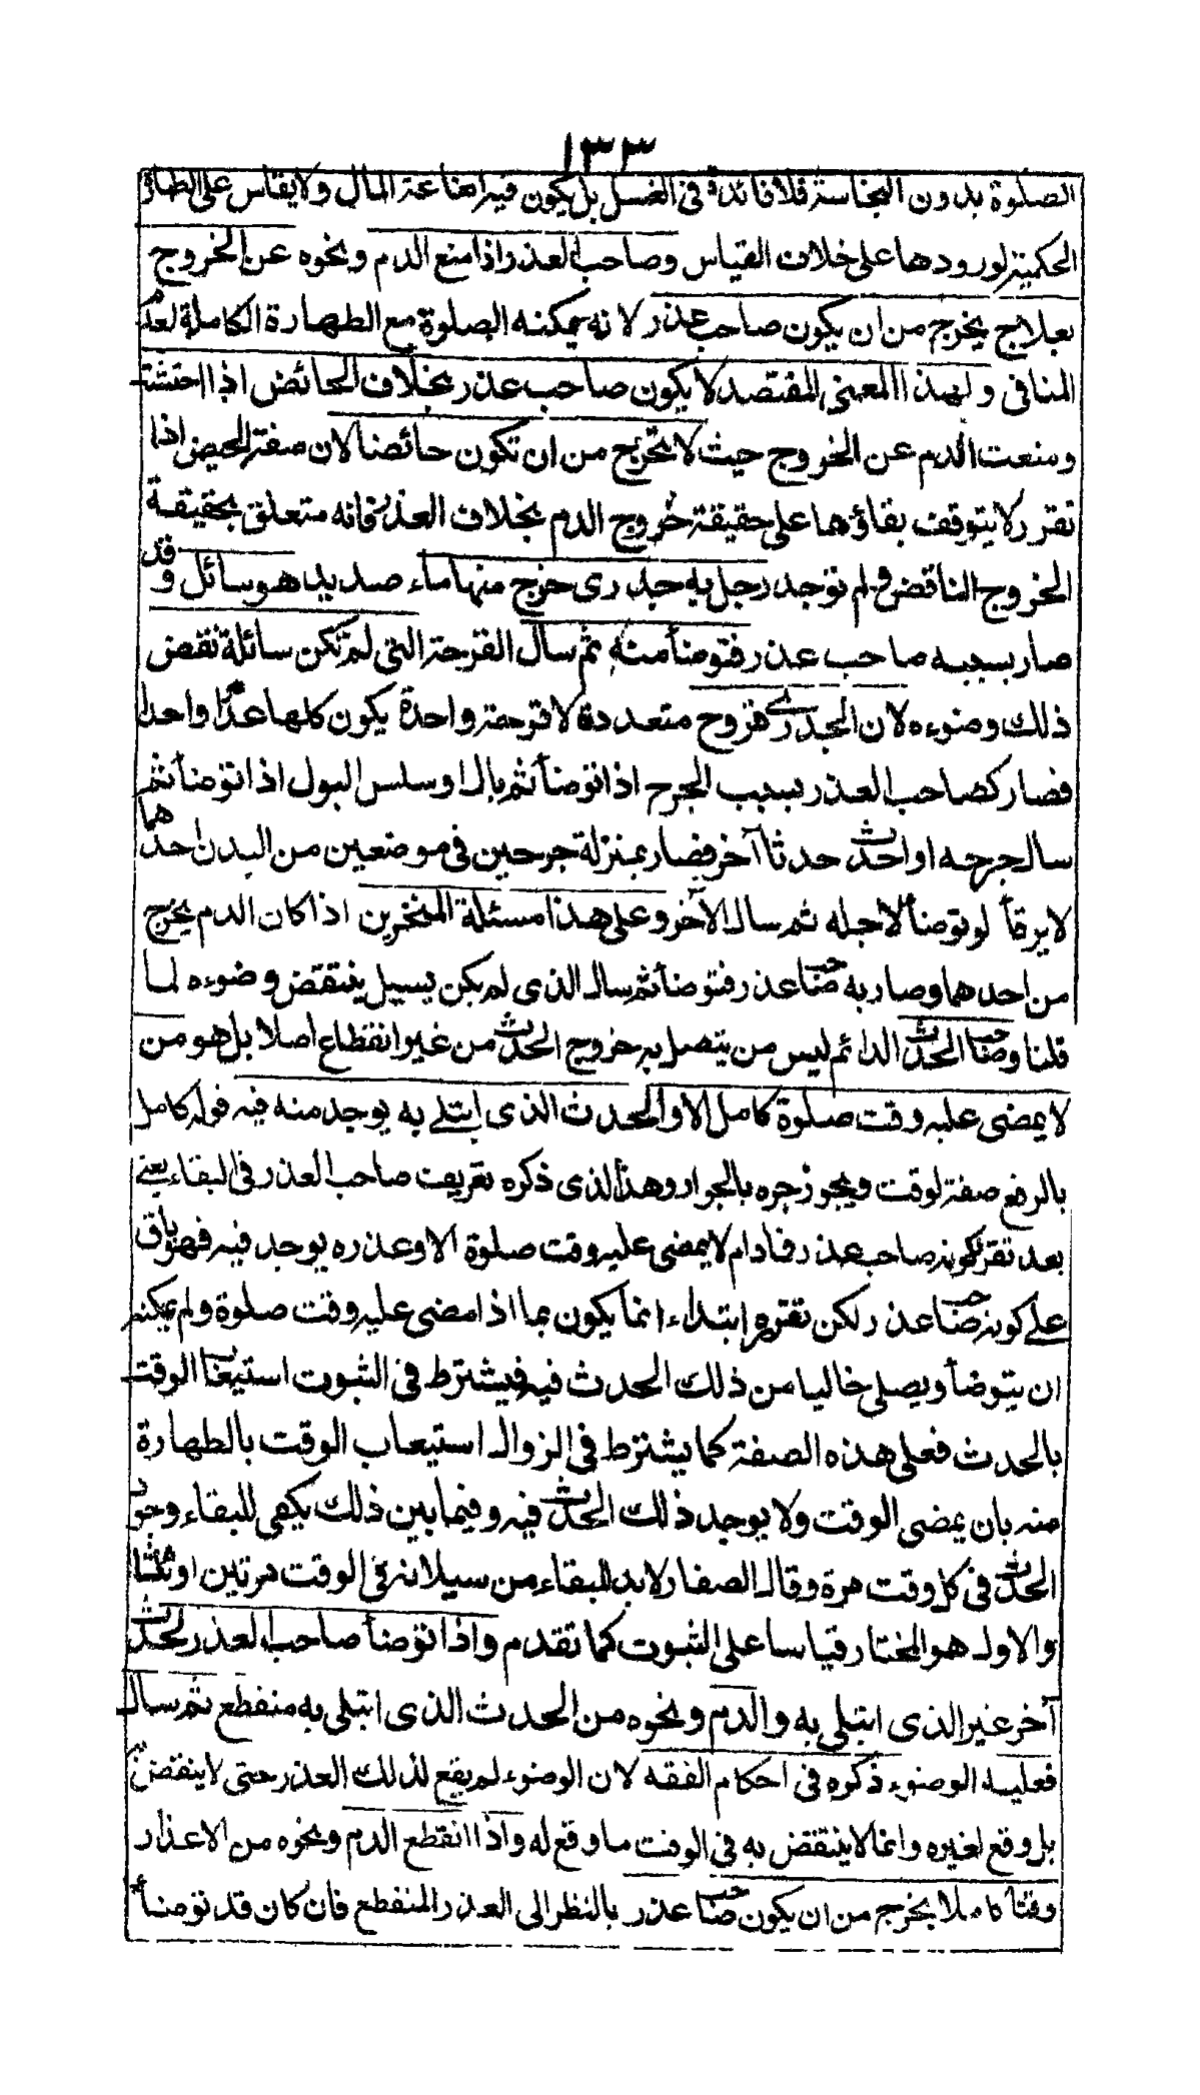 ١٣٣
الصلوة بدون النجاسة فلا فائدة فى الغسل بل يكون فيه اضاعة المال ولا يقاس على الطهارة
الحكمية لورودها على خلاف القياس وصاحب العذر اذا منع الدم ونحوه عن الخروج
بعلاج يخرج من ان يكون صاحب عذر لانه يمكنه الصلوة مع الطهارة الكاملة لعدم
المنافى ولهذا المعنى المفتصد لا يكون صاحب عذر بخلاف الحائض اذا احتشت
ومنعت الدم عن الخروج حيث لا تخرج من ان تكون حائضا لان صفة الحيض اذا
تقرر لا يتوقف بقاؤها على حقيقة خروج الدم بخلاف العذر فانه متعلق بحقيقة
الخروج الناقض ولم توجد رجل به جدرى خرج منها ماء صديد هو سائل وقد
صار بسببه صاحب عذر فتوضأ منه ثم سال القرحة التى لم تكن سائلة نقض
ذلك وضوءه لان الجدرى قروح متعددة لا قرحة واحدة يكون كلها عذرا واحدا
فصار كصاحب العذر بسبب الجرح اذا توضأ ثم بال او سلس البول اذا توضأ ثم
سال جرحه او احدث حدثا آخر فصار بمنزلة جرحين فى موضعين من البدن احدهما
لا يرقأ لو توضأ لاجله ثم سال الآخر وعلى هذا مسئلة المنخرين اذا كان الدم يخرج
من احدهما وصار به صاحب عذر فتوضأ ثم سال الذى لم يكن يسيل ينتقض وضوءه لما
قلنا وصاحب الحدث الدائم ليس من يتصل به خروج الحدث من غير انقطاع اصلا بل هو من
لا يمضى عليه وقت صلوة كامل الا والحدث الذى ابتلى به يوجد منه فيه قوله كامل
بالرفع صفة لوقت ويجوز جره بالجوار وهذا الذى ذكره تعريف صاحب العذر فى البقاء يعنى
بعد تقرر كونه صاحب عذر فما دام لا يمضى عليه وقت صلوة الا وعذره يوجد فيه فهو باق
على كونه صاحب عذر لكن تقرره ابتداء انما يكون بما اذا مضى عليه وقت صلوة ولم يمكنه
ان يتوضأ ويصلى خاليا من ذلك الحدث فيه فيشترط فى الثبوت استيعاب الوقت
بالحدث فعلى هذه الصفة كما يشترط فى الزوال استيعاب الوقت بالطهارة
منه بان يمضى الوقت ولا يوجد ذلك الحدث فيه وفيما بين ذلك يكفى للبقاء وجود
الحدث فى كل وقت مرة وقال الصفار لا بد للبقاء من سيلانه فى الوقت مرتين او ثلثا
والاول هو المختار قياسا على الثبوت كما تقدم واذا توضأ صاحب العذر لحدث
آخر غير الذى ابتلى به والدم ونحوه من الحدث الذى ابتلى به منقطع ثم سال
فعليه الوضوء ذكره فى احكام الفقه لان الوضوء لم يقع لذلك العذر حتى لا ينقض به
بل وقع لغيره وانما لا ينتقض به فى الوقت ما وقع له واذا انقطع الدم ونحوه من الاعذار
وقتا كاملا يخرج من ان يكون صاحب عذر بالنظر الى العذر المنقطع فان كان قد توضأ